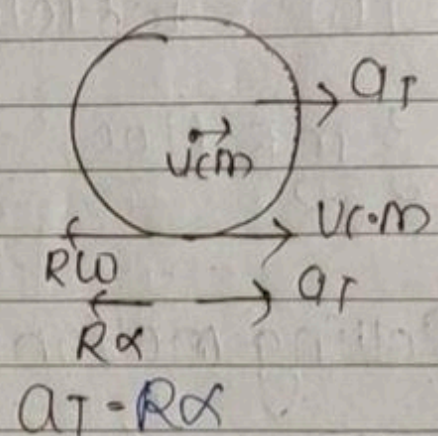 aT
Vcm
Vc.m
Rω
aT
Rα
aT = Rα